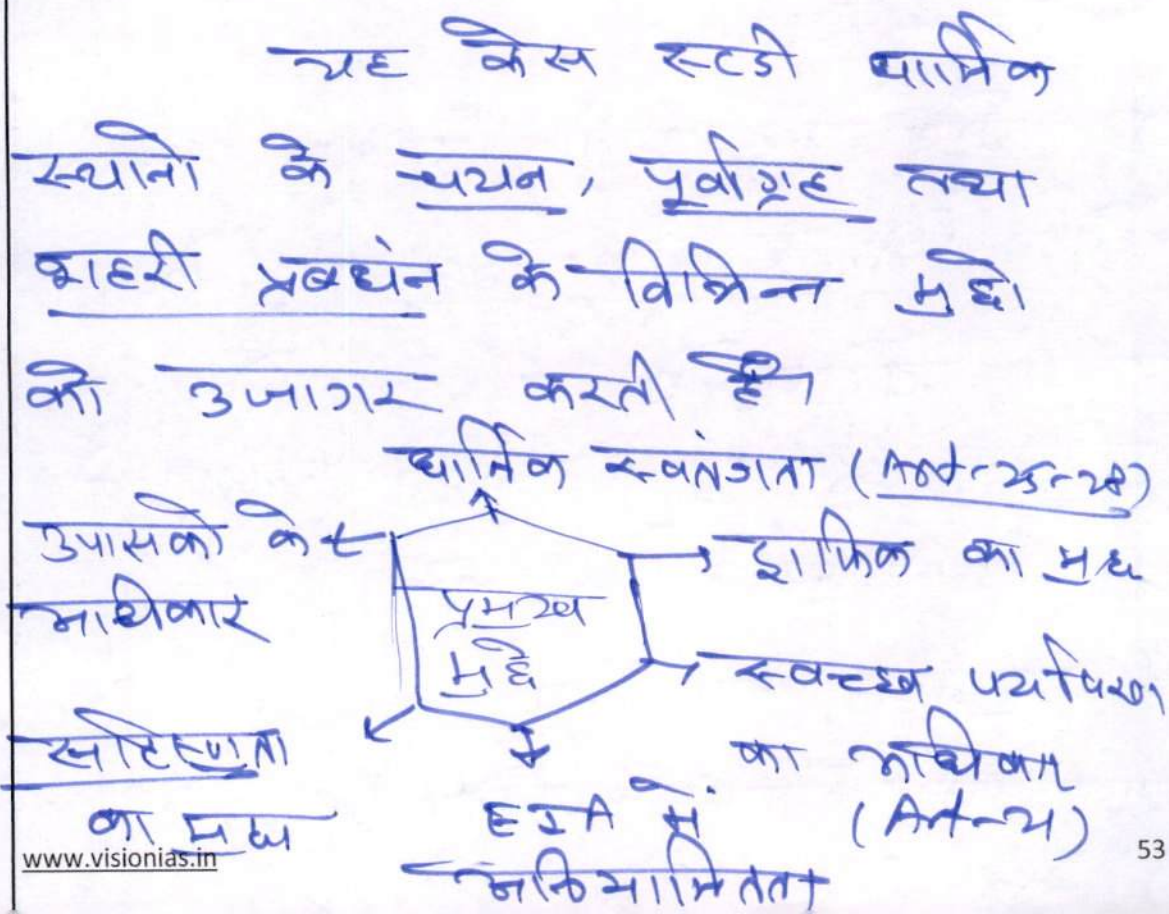 यह केस स्टडी धार्मिक
स्थानो के चयन, पूर्वाग्रह तथा
शहरी प्रबधंन के विभिन्न मुद्दो
को उजागर करती है।
धार्मिक स्वतंत्रता (Art-25-28)
उपासको के
अधिकार
प्रमुख
मुद्दे
ट्राफिक का मुद्दा
स्वच्छ पर्यावरण
का अधिकार
(Art-21)
सहिष्णुता
का मुद्दा
EIA में
अनियमितता
www.visionias.in
53